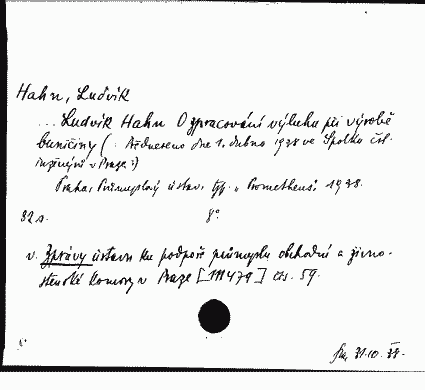 Hahn, Ludvík
... Ludvík Hahn O zpracování výluhu při výrobě
buničiny (: Předneseno dne 1. dubna 1938 ve Spolku čsl.
inženýrů v Praze :)
Praha, Průmyslový ústav, typ. „Prometheus“ 1938.
32 s. 8°
v. Zprávy ústavu ku podpoře průmyslu obchodní a živno-
stenské komory v Praze [111479] čís. 59.
31.10.38.